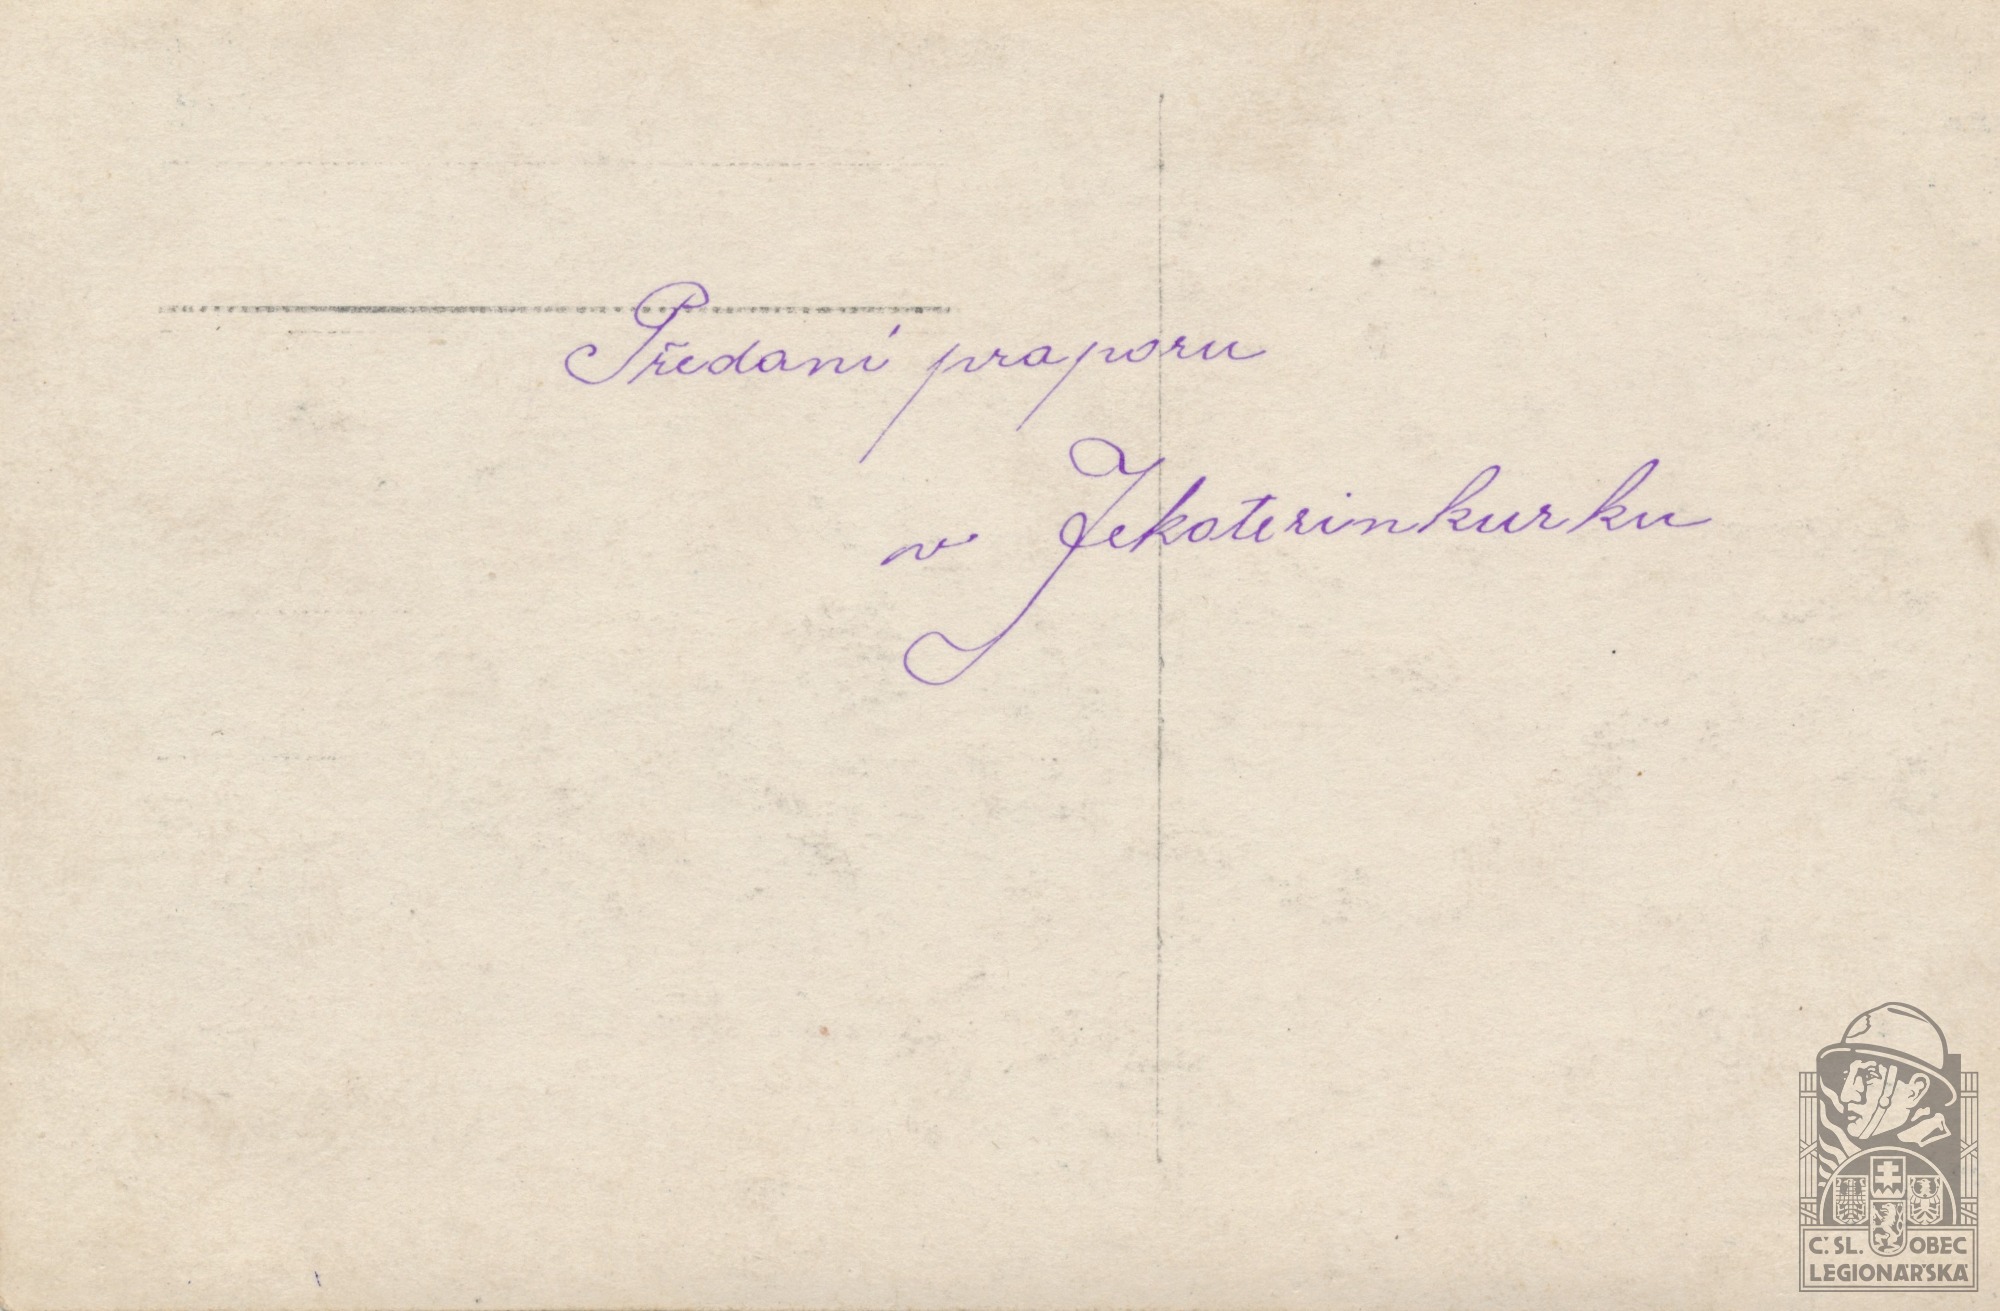 Předaní praporu
v Jekaterinkurku
Č. SL. OBEC
LEGIONÁŘSKÁ